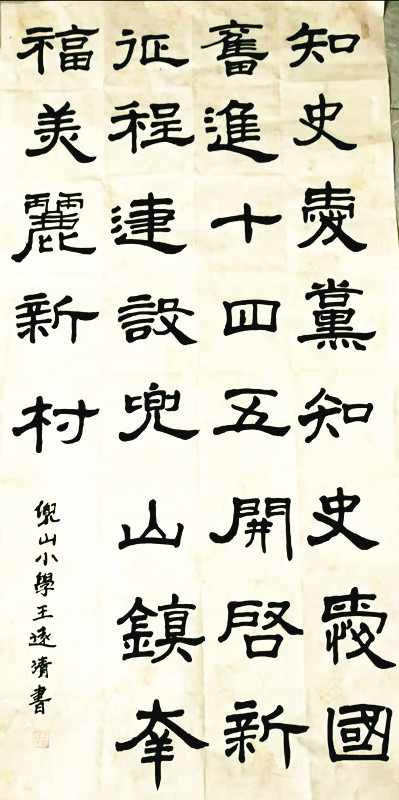 知史愛黨知史愛國
奮進十四五開啓新
征程建設兜山鎮幸
福美麗新村
兜山小學王遠清書